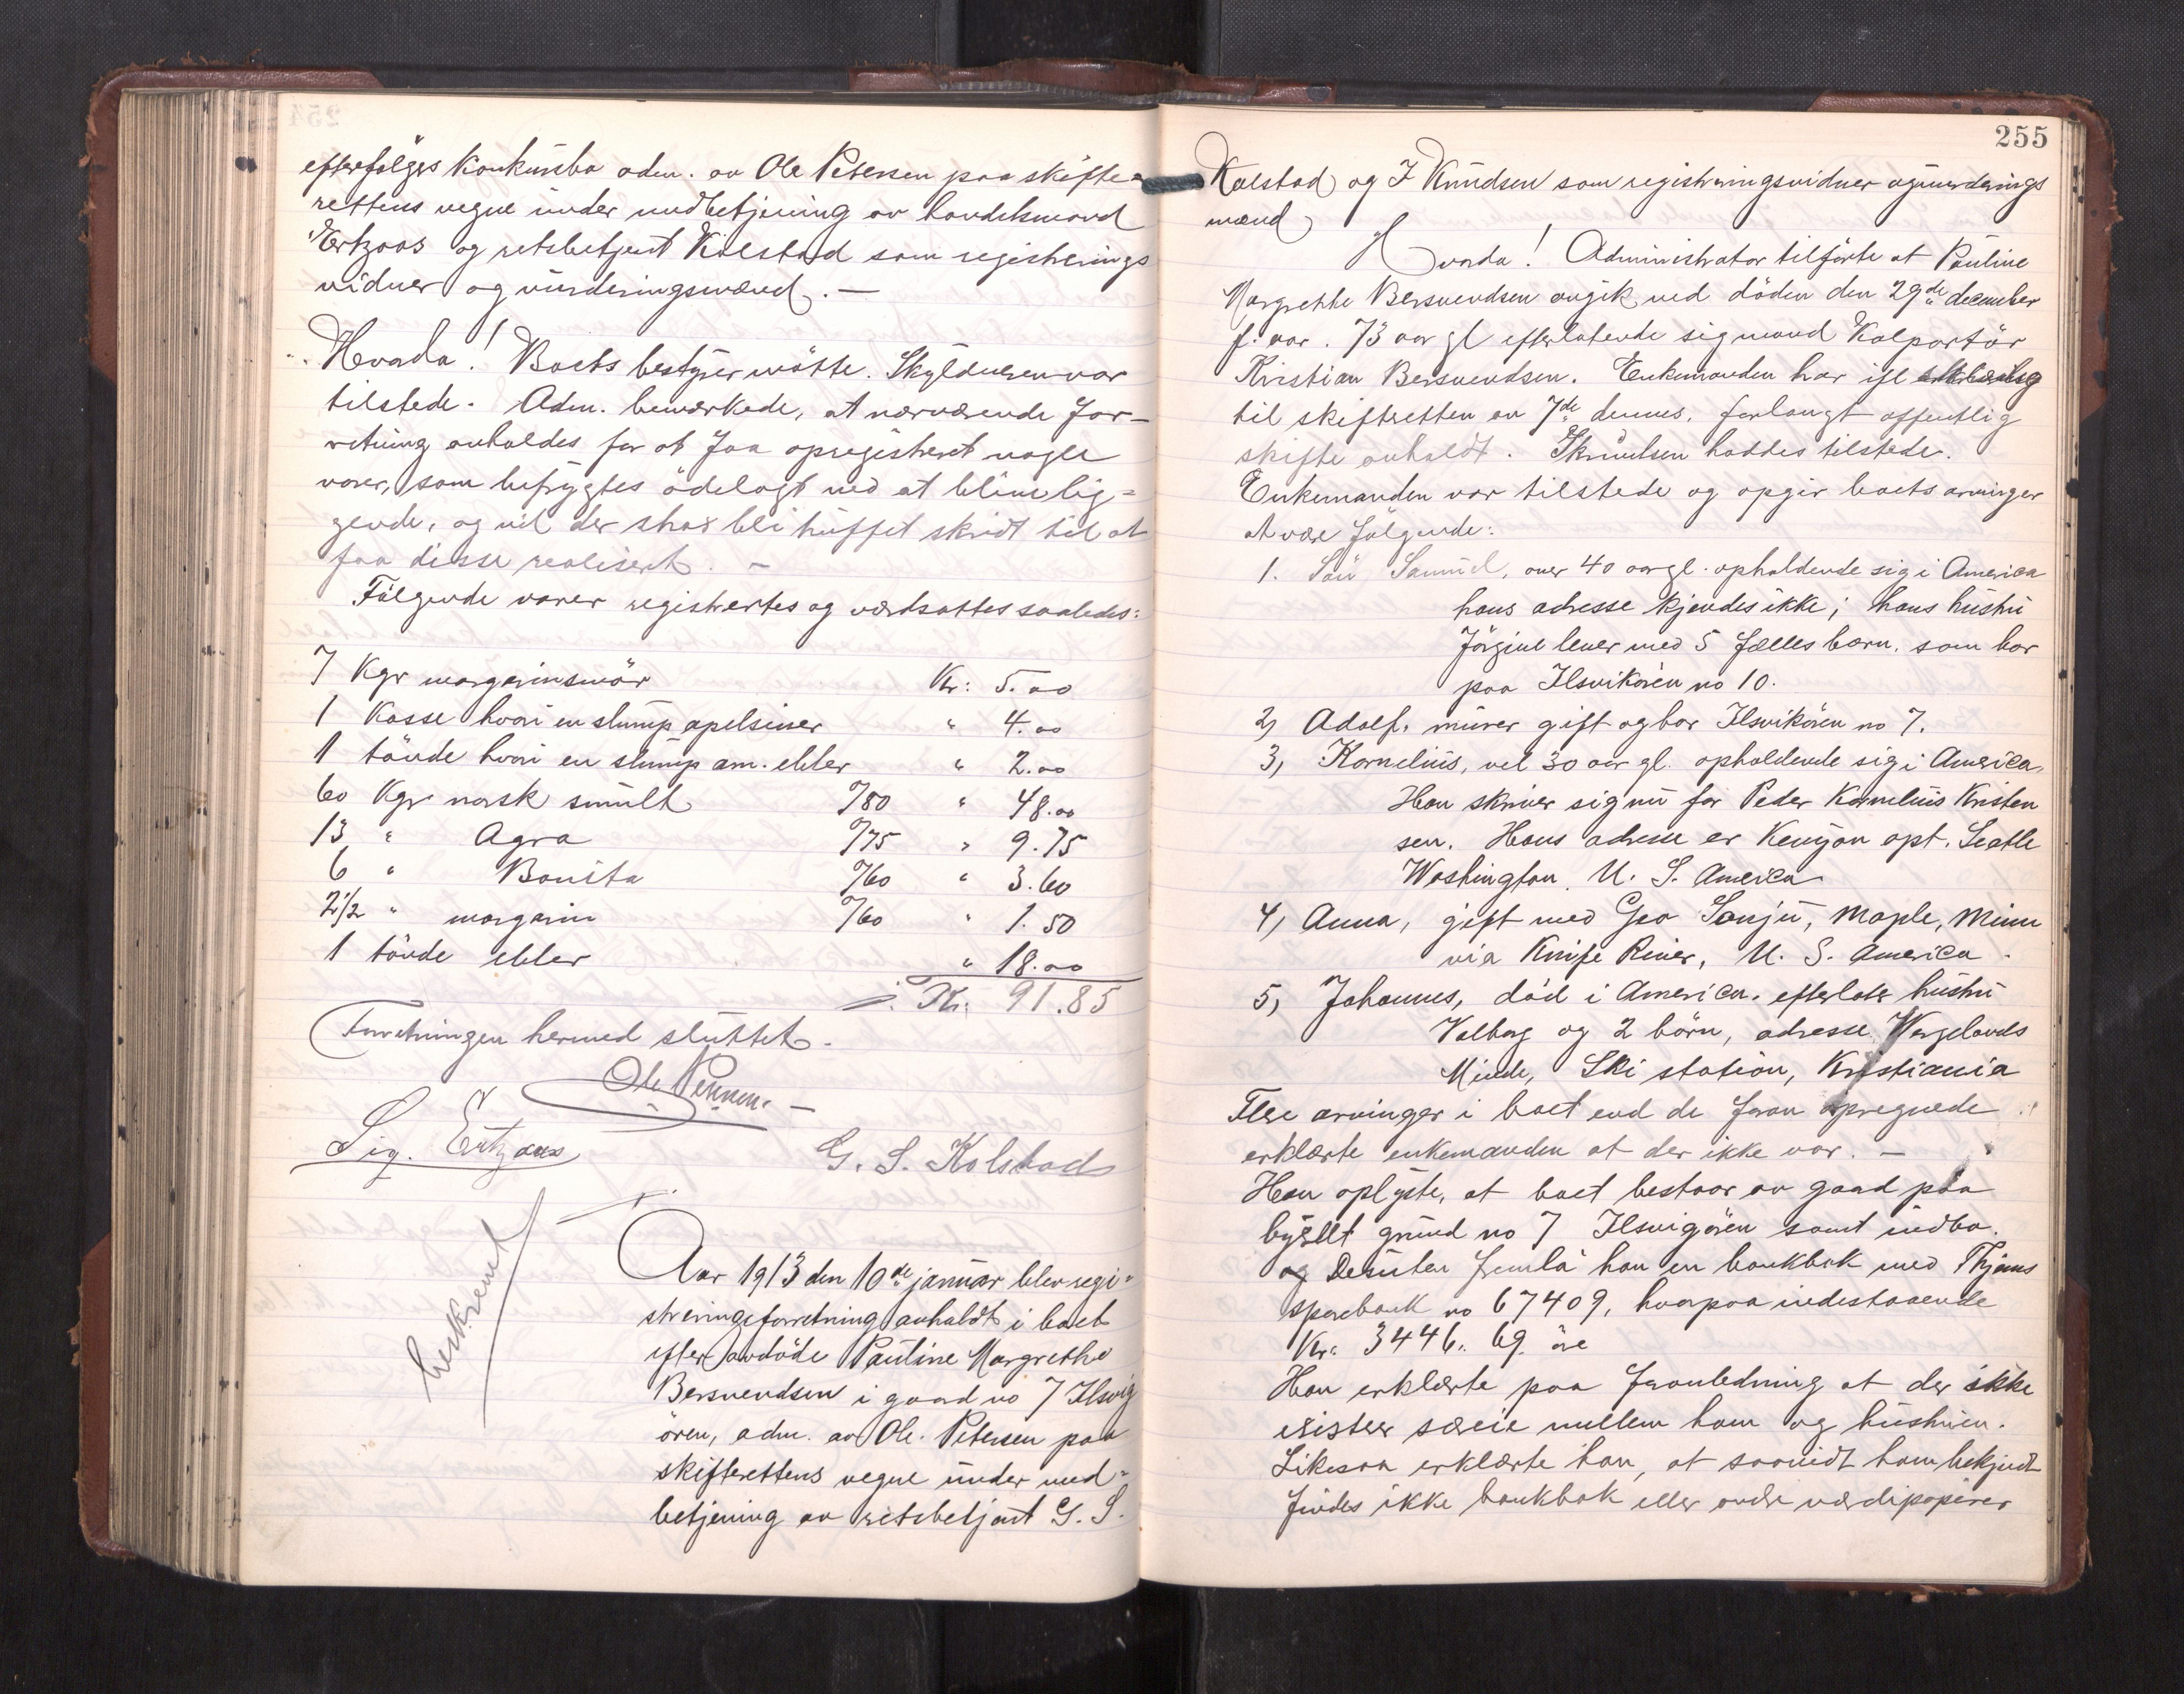 efterfølges konkursbo adm. av Ole Petersen paa skifte-
rettens vegne under medbetjening av handelsmand
Ertzaas og retsbetjent Kolstad som registrerings
vidner og vurderingsmænd. —
Hvorda! Boets bestyrer møtte. Skyldneren var
tilstede. Adm. bemerkede, at nærværende for-
retning anholdes for at faa opregistreret nogle
varer, som befrygtes ødelagt ved at bline lig-
gende, og vil der straks bli truffet skridt til at
faa disse realisert. —
Følgende varer registrertes og værdsattes saaledes:
7 Kgr margarinsmør Kr: 5.00
1 Kasse hvori en slump apelsiner " 4.00
1 tønde hvori en slump am. ebler " 2.00
60 Kgr norsk smult °/80 " 48.00
13 " Agra °/75 " 9.75
6 " Bonita °/60 " 3.60
2 1/2 " margarin °/60 " 1.50
1 tønde ebler " 18.00
Kr: 91.85
Forretningen hermed sluttet.
Ole Petersen. —
Sig. Ertzaas
G. S. Kolstad
beskrevet
Aar 1913 den 10de januar blev regi-
streringsforretning anholdt i boet
efter avdøde Pauline Margrethe
Bersvendsen i gaard no 7 Ilsvig
øren, adm. av Ole Petersen paa
skifterettens vegne under med-
betjening av retsbetjent G. S.
255
Kolstad og I Knudsen som registreringsvidner og vurderings
mænd
Hvorda! Administrator tilførte at Pauline
Margrethe Bersvendsen avgik ved døden den 29de december
f. aar. 73 aar gl efterlatende sig mand Kolportør
Kristian Bersvendsen. Enkemanden har ifl
til skifteretten av 7de dennes. forlangt offentlig
skifte anholdt. Skrivelsen haddes tilstede.
Enkemanden var tilstede og opgir boets arvinger
at være følgende:
1. Søn Samuel, over 40 aar gl. opholdende sig i America
hans adresse kjendes ikke; hans hustru
Jørgine lever med 5 fælles barn. som bor
paa Ilsvikøren no 10.
2, Adolf. murer gift og bor Ilsvikøren no 7.
3, Kornelius, vel 30 aar gl. opholdende sig i America,
Han skriver sig nu for Peder Kornelius Kristen
sen. Hans adresse er Kenyon apt. Seatle
Washington, U. S. America
4, Anna, gift med Geo Sanju, Maple, Minn
via Knife River, U. S. America.
5, Johannes, død i America. efterlater hustru
Valborg og 2 børn, adresse Wergelands
Minde, Ski station, Kristiania
Flere arvinger i boet end de foran opregnede
erklærte enkemanden at der ikke var. —
Han oplyste, at boet bestaar av gaard paa
byslt grund no 7 Ilsvigøren samt indbo.
og Desuten fremla han en bankbok med Thjems
sparebank no 67409, hvorpaa indestaaende
Kr. 3446. 69 øre
Han erklærte paa foranledning at der ikke
exister særeie mellem ham og hustruen.
Likesaa erklærte han, at saavidt ham bekjent
findes ikke bankbok eller andre værdipapirer